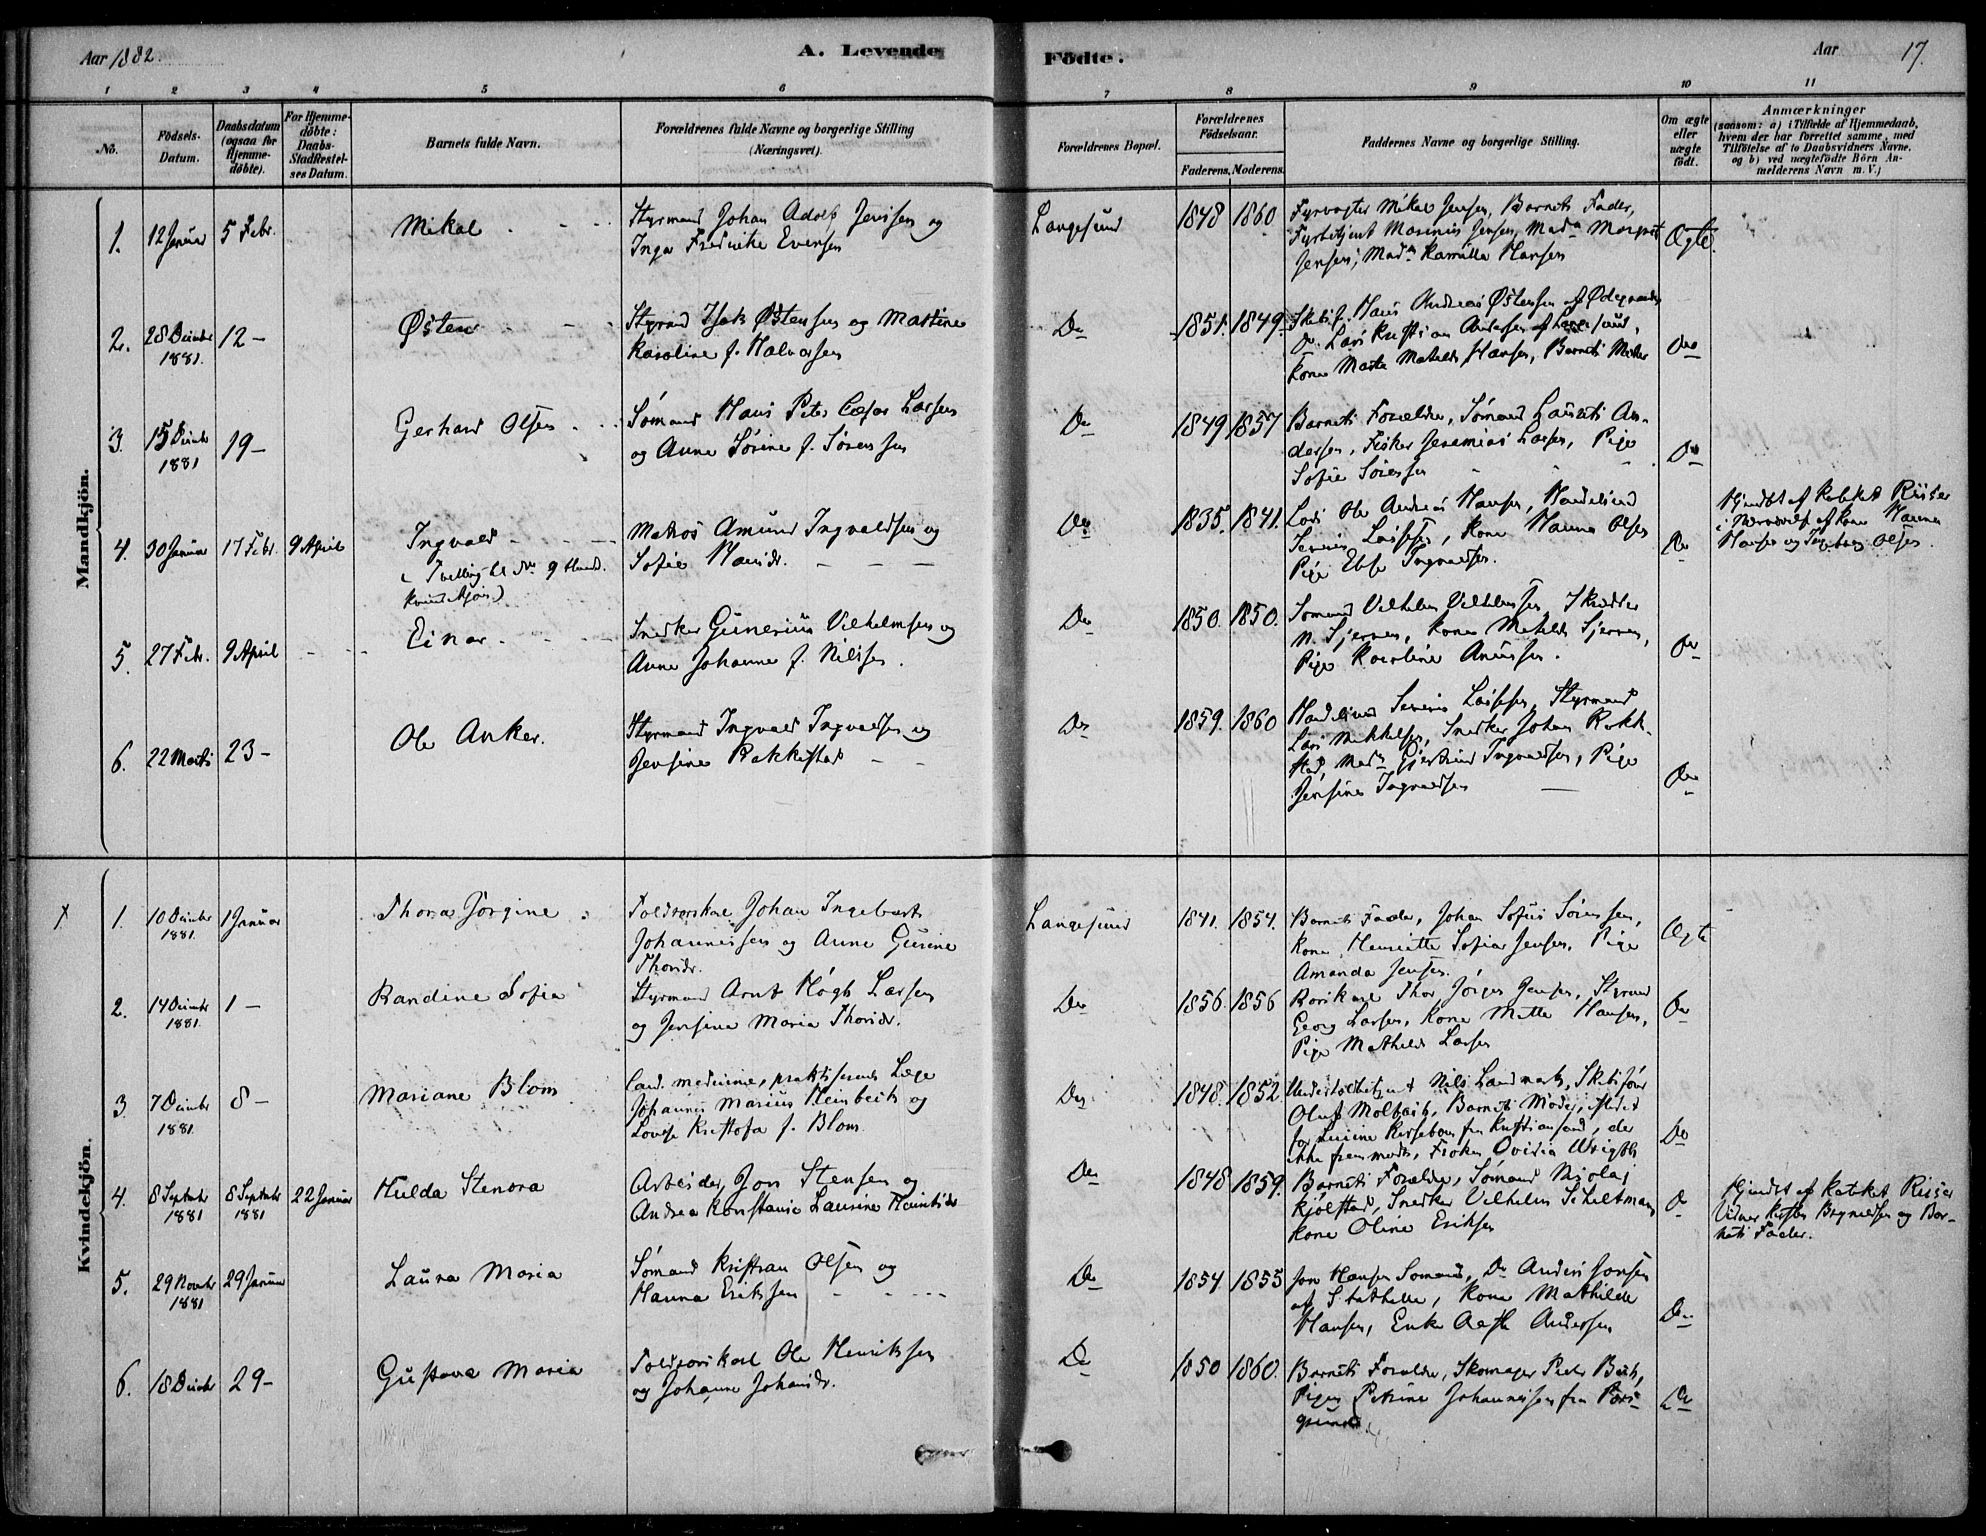 Aar 1882.
A. Levende
Födte.
Aar
17.
1
2
3
4
5
6
7
8
9
10
11
No.
Födsels-Datum.
Daabsdatum (ogsaa for Hjemme-döbte).
For Hjemme-döbte: Daabs-Stadfæstel-ses Datum.
Barnets fulde Navn.
Forældrenes fulde Navne og borgerlige Stilling
(Næringsvei).
Forældrenes Bopæl.
Forældrenes Födselsaar.
Faderens. Moderens.
Faddernes Navne og borgerlige Stilling.
Om ægte eller uægte födt.
Anmærkninger
(saasom: a) i Tilfælde af Hjemmedaab, hvem der har forrettet samme, med Tilföielse af to Daabsvidners Navne, og b) ved uægtefödte Börn Anmelderens Navn m. V.)
Mandkjön.
1. 12 Januar 5 Febr. Mikal
Styrmand Johan Adolf Jenssen og
Inga Fredrikke Evensen
Langesund 1848 1860
Fyrvogter Mikal Jensen, Barnets Fader,
Fyrbetjent Marinius Jensen, Mad. Margrit
Jensen, Mad. Kamilla Hansen
Ægte.
2. 28 Decmbr 1881. 12 – Østen
Styrmd Isak Østensen og Martine
Karoline f. Halvorsen
Do 1851. 1849.
Skibsf. Hans Andreas Østensen af
Do. Lars Kristian Andersen af Langesund,
Kone Marte Matilde Hansen, Barnets Moder
Do
3. 15 Decmbr 1881 19 – Gerhard Olsen
Sømand Hans Peter Cæsar Larsen
og Anne Sørine f. Sørensen
Do 1849 1857
Barnets Forældre, Sømand Laurits An-
dersen, Fisker Jeremias Larsen, Pige
Sofie Sørensen
Do
4. 30 Januar 17 Febr. 9 April Ingvald
(Tvilling til No 9
Kvindekjøn)
Matros Amund Ingvaldsen og
Sofie Hansdr.
Do 1835. 1841.
Lods Ole Andreas Hansen, Handelsmd
Severin Larssen, Kone Hanna Olsen
Pige Ebse Ingvaldsen.
Do
Hjmdbt af Kateket Riiser
i Nærværelse af Kone Hanna
Hansen og Ingeborg Olsen.
5. 27 Febr. 9 April Einar
Snedker Gunerius Vilhelmsen og
Anne Johanne f. Nilsen.
Do 1850. 1850.
Sømand Vilhelm Vilhelmsen, Skrædder
N. Stjernen, Kone Matilde Stjernen,
Pige Karoline
Do
6. 22 Marts 23 – Ole Anker.
Styrmand Ingvald Ingvaldsen og
Jensine Rakkestad
Do 1859. 1860
Handelsmd Severin Larssen, Styrmand
Lars Mikkelsen, Snedker Johan Rakke-
stad, Mad. Gjertrud Ingvaldsen, Pige
Jensine Ingvaldsen
Do
Kvindekjön.
x 1. 10 Decmbr 1881. 1 Januar Thora Jörgine
Toldvorskarl Johan Ingebret
Johannessen og Anne Gurine
Thorsdr.
Langesund 1841. 1854.
Barnets Fader, Johan Sofus Sørensen,
Kone Henriette Sofie Jensen, Pige
Amanda Jensen.
Ægte
2. 14 Decmbr 1881. 1 – Randine Sofia
Styrmand Arnt Høgh Larsen
og Jensine Maria Thorsdr.
Do 1856. 1856
Rorskarl Thor Jörgen Jensen, Styrmd
Georg Larsen, Kone Mette Hansen,
Pige Mathilde Larsen
Do
3 7 Decmbr 1881. 8 – Mariane Blom
Cand. medicinæ, praktiserende Læge
Johannes Marius Reinbeck og
Lovise Kristofa f. Blom.
Do 1848. 1852
Undertoldbetjent Nils Landmark, Skibsfører
Oluf Moltzau, Barnets Moder, istedet
for Lucine Kirsebom fra Kristiansand, der
ikke fremmødte, Frøken Ovidia Wrigth
Do
4. 8 Septmbr 1881 8 Septmbr 1881 22 Januar Hulda Stenora
Arbeider Jon Stensen og
Andrea Konstance Laurine Henriksdr
Do 1848 1859.
Barnets Forældre, Sømand Nikolaj
Kjølstad, Snedker Vilhelm Schiltman
Kone Oline Eriksen
Do
Hjmdbt af Kateket Riiser
Vidner Kirsten Brynildsen og Bar-
nets Fader.
5. 29 Novmbr 1881 29 Januar Laura Maria
Sømand Kristian Olsen og
Hanna Eriksen
Do 1854 1855
Jon Hansen Sømand, Do Anders Jonsen
af Stathelle, Kone Mathilde
Hansen, Enke Andersen
Do
6. 18 Decmbr 29 – Gustava Maria
Toldvorskarl Ole Henriksen
og Johanne Johansdr.
Do 1850 1860.
Barnets Forældre, Skomager Peder Beck,
Pigen Petrine Johannessen fra Pors-
grund
Do